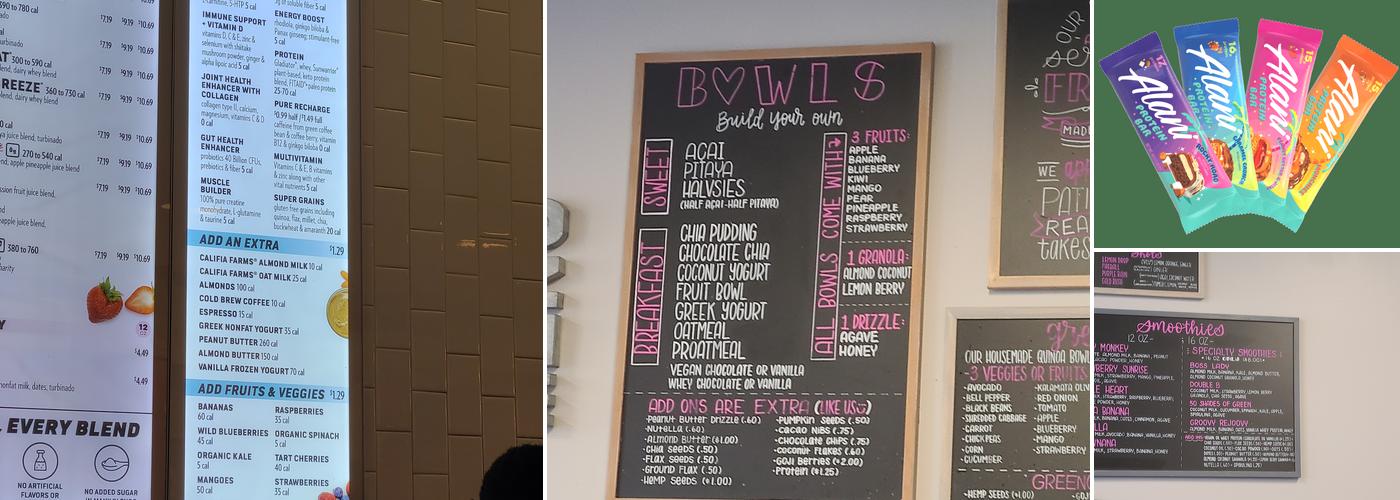 390 to 780 cal
$7.19 $9.19 $10.69
turbinado
$7.19 $9.19 $10.69
300 to 590 cal
blend, dairy whey blend
$7.19 $9.19 $10.69
REEZE 360 to 730 cal
blend, dairy whey blend
$7.19 $9.19 $10.69
juice blend, turbinado
$7.19 $9.19 $10.69
270 to 540 cal
blend, apple pineapple juice blend
$7.19 $9.19 $10.69
fruit juice blend,
$7.19 $9.19 $10.69
apple juice blend,
380 to 760
$7.19 $9.19 $10.69
charity
12 OZ
$4.49
$4.49
nonfat milk, dates, turbinado
EVERY BLEND
NO ARTIFICIAL
FLAVORS OR
NO ADDED SUGAR
L-carnitine, 5-HTP 5 cal
IMMUNE SUPPORT
+ VITAMIN D
vitamins D, C & E, zinc &
selenium with shiitake
mushroom powder, ginger &
alpha lipoic acid 5 cal
JOINT HEALTH
ENHANCER WITH
COLLAGEN
collagen type II, calcium,
magnesium, vitamins C & D
0 cal
GUT HEALTH
ENHANCER
probiotics 40 Billion CFUs,
prebiotics & fiber 5 cal
MUSCLE
BUILDER
100% pure creatine
monohydrate, L-glutamine
& taurine 5 cal
3g of soluble fiber 5 cal
ENERGY BOOST
rhodiola, ginkgo biloba &
Panax ginseng; stimulant-free
5 cal
PROTEIN
Gladiator®, whey, Sunwarrior®
plant-based, keto protein
blend, FITAID® paleo protein
25-70 cal
PURE RECHARGE
$0.99 half / $1.49 full
caffeine from green coffee
bean & coffee berry, vitamin
B12 & ginkgo biloba 0 cal
MULTIVITAMIN
Vitamins C & E, B vitamins
& zinc along with other
vital nutrients 5 cal
SUPER GRAINS
gluten free grains including
quinoa, flax, millet, chia,
buckwheat & amaranth 20 cal
ADD AN EXTRA $1.29
CALIFIA FARMS® ALMOND MILK 10 cal
CALIFIA FARMS® OAT MILK 25 cal
ALMONDS 100 cal
COLD BREW COFFEE 10 cal
ESPRESSO 15 cal
GREEK NONFAT YOGURT 35 cal
PEANUT BUTTER 260 cal
ALMOND BUTTER 150 cal
VANILLA FROZEN YOGURT 70 cal
ADD FRUITS & VEGGIES $1.29
BANANAS
60 cal
WILD BLUEBERRIES
45 cal
ORGANIC KALE
5 cal
MANGOES
50 cal
RASPBERRIES
35 cal
ORGANIC SPINACH
5 cal
TART CHERRIES
40 cal
STRAWBERRIES
35 cal
BOWLS
Build your own
SWEET
AÇAI
PITAYA
HALVSIES
(HALF AÇAI-HALF PITAYA)
BREAKFAST
CHIA PUDDING
CHOCOLATE CHIA
COCONUT YOGURT
FRUIT BOWL
GREEK YOGURT
OATMEAL
PROATMEAL
VEGAN CHOCOLATE OR VANILLA
WHEY CHOCOLATE OR VANILLA
ALL BOWLS COME WITH
3 FRUITS:
APPLE
BANANA
BLUEBERRY
KIWI
MANGO
PEAR
PINEAPPLE
RASPBERRY
STRAWBERRY
1 GRANOLA:
ALMOND COCONUT
LEMON BERRY
1 DRIZZLE:
AGAVE
HONEY
ADD ONS ARE EXTRA (LIKE US)
-Peanut Butter Drizzle (.60)
-Nutella (.60)
-Almond Butter (+1.00)
-Chia Seeds (.50)
-Flax Seeds (.50)
-Ground Flax (.50)
-Hemp Seeds (+1.00)
-Pumpkin Seeds (.50)
-Cacao Nibs (.75)
-Chocolate Chips (.75)
-Coconut Flakes (.60)
-Goji Berries (+2.00)
-Protein (+1.25)
OUR
MADE
WE
PATI
REA
takes
gre
OUR HOUSEMADE QUINOA BOWL
-3 VEGGIES OR FRUITS
-AVOCADO
-BELL PEPPER
-BLACK BEANS
-SHREDDED CABBAGE
-CARROT
-CHICKPEAS
-CORN
-CUCUMBER
-KALAMATA OLIV
-RED ONION
-TOMATO
-APPLE
-BLUEBERRY
-MANGO
-STRAWBERRY
-HEMP SEEDS (+1.00)
GREENO
Alani
PROTEIN
BAR
ROCKY ROAD
Alani
PROTEIN
BAR
Alani
PROTEIN
BAR
Alani
Shots
LEMON DROP
FIREBALL
PURPLE RAIN
GOLD RUSH
smoothies
12 OZ-
16 OZ-
MONKEY
BERRY SUNRISE
HEART
BANANA
SPECIALTY SMOOTHIES
BOSS LADY
ALMOND MILK, BANANA, KALE, ALMOND BUTTER,
DOUBLE B
COCONUT MILK, BLUEBERRY, LEMON BERRY
GRANOLA, CHIA SEEDS, AGAVE
50 SHADES OF GREEN
COCONUT MILK, CUCUMBER, SPINACH, KALE, APPLE,
SPIRULINA, AGAVE
GROOVY REJOOVY